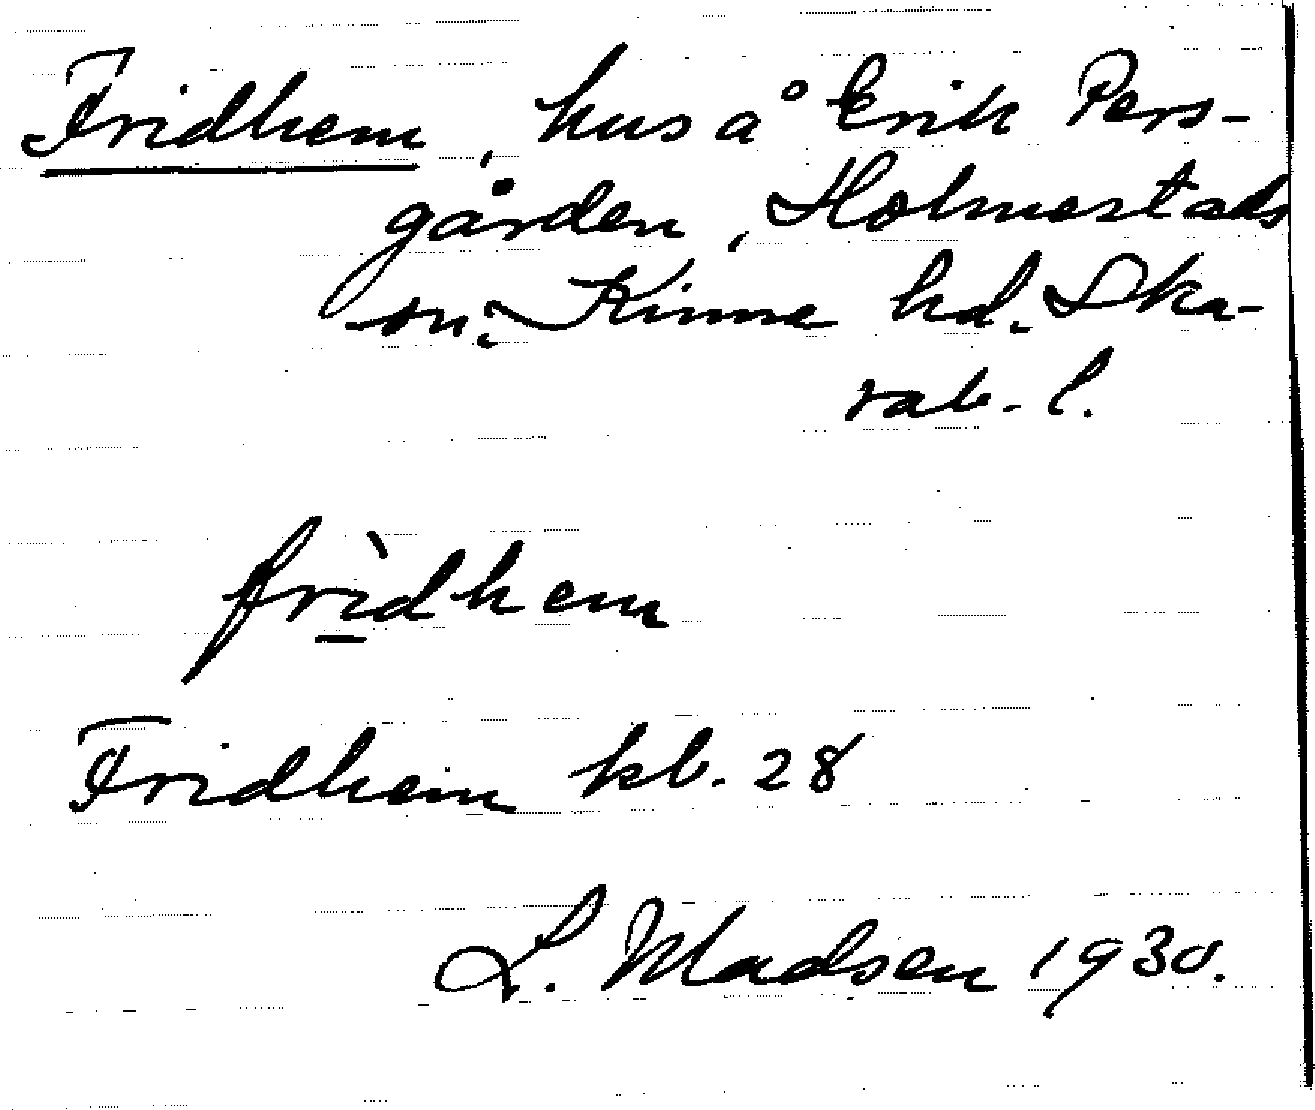 Fridhem, hus å Erik Pers-
gården, Holmestads
sn. Kinne hd. Ska-
rab. l.
frìdhem
Fridhem kb. 28
L. Madsen 1930.